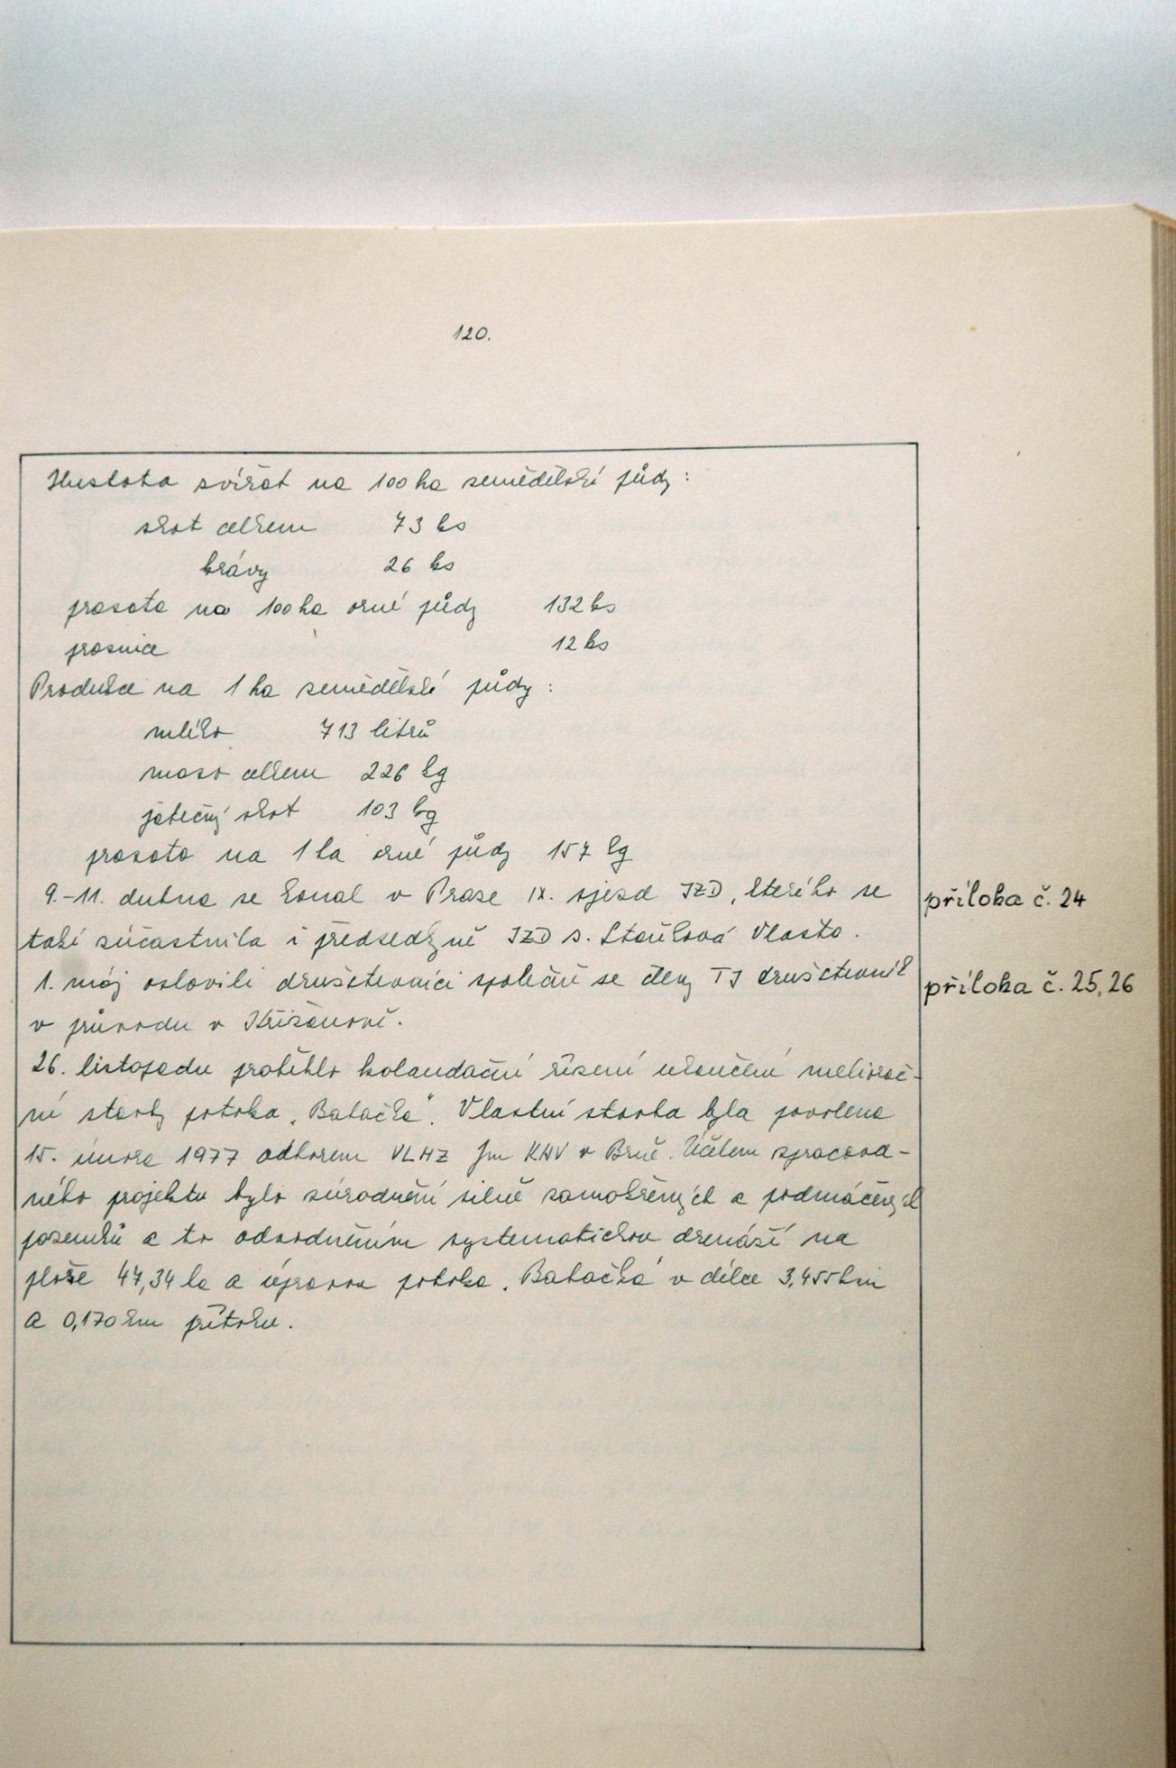 120.
Hustota zvířat na 100 ha zemědělské půdy:
skot celkem 73 ks
krávy 26 ks
prasata na 100 ha orné půdy 132 ks
prasnice 12 ks
Produkce na 1 ha zemědělské půdy:
mléko 713 litrů
maso celkem 226 kg
jatečný skot 103 kg
prasata na 1 ha orné půdy 157 kg
9.-11. dubna se konal v Praze IX. sjezd JZD, kterého se
příloha č. 24
také zúčastnila i předsedkyně JZD s. Vlasta.
1. máj oslavili družstevníci společně se členy TJ družstevník
příloha č. 25, 26
v průvodu v Křižanově.
26. listopadu proběhlo kolaudační řízení ukončené meliorač-
ní stavby potoka „Babačka". Vlastní stavba byla povolena
15. února 1977 odborem VLHZ Jm KNV v Brně. Účelem zpracova-
ného projektu bylo zúrodnění silně zamokřených a podmáčených
pozemků a to odvodněním systematickou drenáží na
ploše 47,34 ha a úpravou potoka „Babačka" v délce 3,455 km
a 0,170 km přítoku.